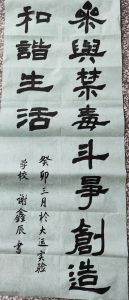 参與禁毒斗爭創造
和諧生活
癸卯三月於大运实验
学校 谢鑫辰 書